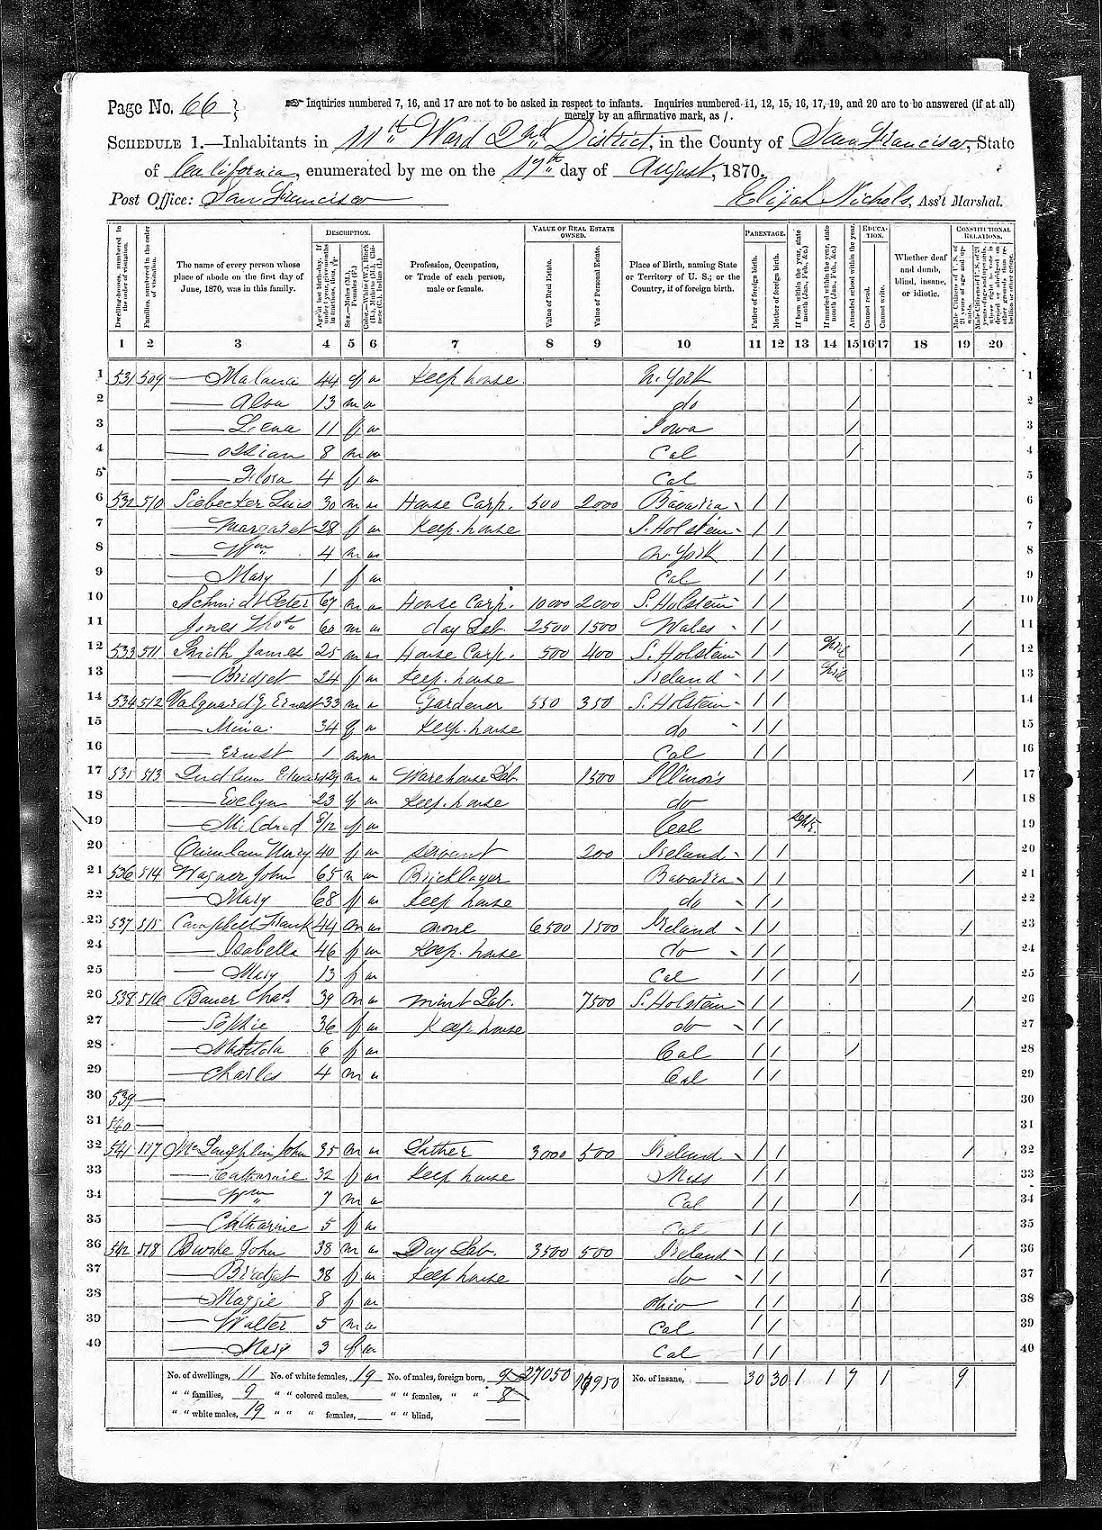 Page No. 66 } ☞ Inquiries numbered 7, 16, and 17 are not to be asked in respect to infants. Inquiries numbered 11, 12, 15, 16, 17, 19, and 20 are to be answered (if at all)
merely by an affirmative mark, as /.
SCHEDULE 1.—Inhabitants in 11th Ward 2nd District, in the County of San Francisco, State
of California, enumerated by me on the 17th day of August, 1870.
Post Office: San Francisco Elijah Nichols, Ass't Marshal.
DESCRIPTION. VALUE OF REAL ESTATE OWNED. PARENTAGE. EDUCATION. CONSTITUTIONAL RELATIONS.
Dwelling-houses, numbered in the order of visitation.
Families, numbered in the order of visitation.
The name of every person whose place of abode on the first day of June, 1870, was in this family.
Profession, Occupation, or Trade of each person, male or female.
Value of Real Estate.
Value of Personal Estate.
Place of Birth, naming State or Territory of U. S.; or the Country, if of foreign birth.
Father of foreign birth.
Mother of foreign birth.
If born within the year, state month (Jan., Feb., &c.)
If married within the year, state month (Jan., Feb., &c.)
Attended school within the year.
Cannot read.
Cannot write.
Whether deaf and dumb, blind, insane, or idiotic.
1 2 3 4 5 6 7 8 9 10 11 12 13 14 15 16 17 18 19 20
1 531 509 —— 44 f w Keep house N. York 1
2 —— Alva 13 m w do / 2
3 —— Lena 11 f w Iowa / 3
4 —— Ossian 8 m w Cal / 4
5 —— Flora 4 f w Cal 5
6 532 510 Siebecker Luis 30 m w House Carp. 500 2000 Bavaria / / 6
7 —— Margaret 28 f w Keep. house S. Holstein / / 7
8 —— Wm 4 m w N. York / / 8
9 —— Mary 1 f w Cal / / 9
10 Schmidt Peter 67 m w House Carp. 10000 2000 S. Holstein / / / 10
11 Jones Thos. 60 m w day Lab. 2500 1500 Wales / / / 11
12 533 511 Smith James 25 m w House Carp. 500 400 S. Holstein / / April / 12
13 —— Bridget 24 f w Keep. house Ireland / / April 13
14 534 512 Ernest 33 m w Gardener 550 350 S. Holstein / / 14
15 —— Mina 34 f w Keep. house do / / 15
16 —— Ernst 1 m w Cal / / 16
17 535 513 Edward 29 m w Warehouse Lab. 1500 Illinois / 17
18 —— Evelyn 23 f w Keep. house do 18
19 —— Mildred 8/12 f w Cal Sept. 19
20 Quinlan Mary 40 f w servant 200 Ireland / / 20
21 536 514 Wagner John 65 m w Bricklayer Bavaria / / / 21
22 —— Mary 68 f w Keep house do / / 22
23 537 515 Campbell Frank 44 m w none 6500 1500 Ireland / / / 23
24 —— Isabella 46 f w Keep. house do / / 24
25 —— Mary 13 f w Cal / / / 25
26 538 516 Bauer Chas. 39 m w Mint Lab. 7500 S. Holstein / / / 26
27 —— Sophie 36 f w Keep house do / / 27
28 —— Matilda 6 f w Cal / / / 28
29 —— Charles 4 m w Cal / / 29
30 539 — 30
31 540 — 31
32 541 517 McLaughlin John 35 m w Lather 3000 500 Ireland / / / 32
33 —— Catharine 32 f w Keep house Miss / / 33
34 —— Wm 7 m w Cal / / / 34
35 —— Catharine 5 f w Cal / / 35
36 542 518 Burke John 38 m w Day Lab. 3500 500 Ireland / / / 36
37 —— Bridget 38 f w Keep house do / / / 37
38 —— Maggie 8 f w Ohio / / / 38
39 —— Walter 5 m w Cal / / 39
40 —— Mary 3 f w Cal / / 40
No. of dwellings, 11 No. of white females, 19 No. of males, foreign born, 9 27050 No. of insane, —— 30 30 1 1 9 1 9
" " families, 9 " " colored males, —— " " females, " " 8
" " white males, 19 " " " females, —— " " blind, ——